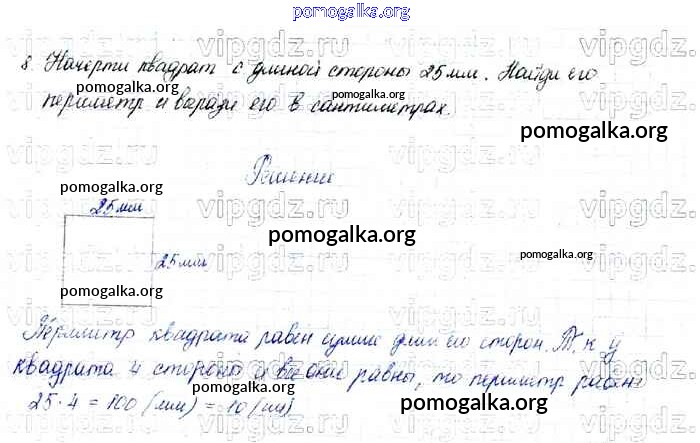 pomogalka.org
8. Начерти квадрат с длиной стороны 25 мм. Найди его
периметр и вырази его в сантиметрах.
pomogalka.org
pomogalka.org
pomogalka.org
Решение
pomogalka.org
25мм
pomogalka.org
25мм
pomogalka.org
pomogalka.org
Периметр квадрата равен сумме длин его сторон. Т. к. у
квадрата 4 стороны и все они равны, то периметр равен
25·4 = 100 (мм) = 10 (см)
pomogalka.org
pomogalka.org
vipgdz.ru